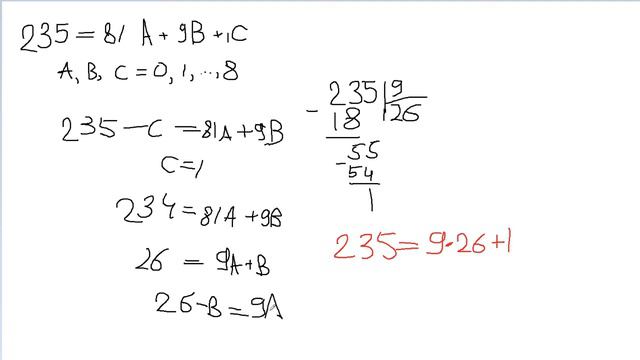 235 = 81 A + 9B + 1C
A, B, C = 0, 1, ..., 8
235 - C = 81A + 9B
C = 1
234 = 81A + 9B
26 = 9A + B
26 - B = 9A
235 | 9
- 18 | 26
55
- 54
1
235 = 9 · 26 + 1